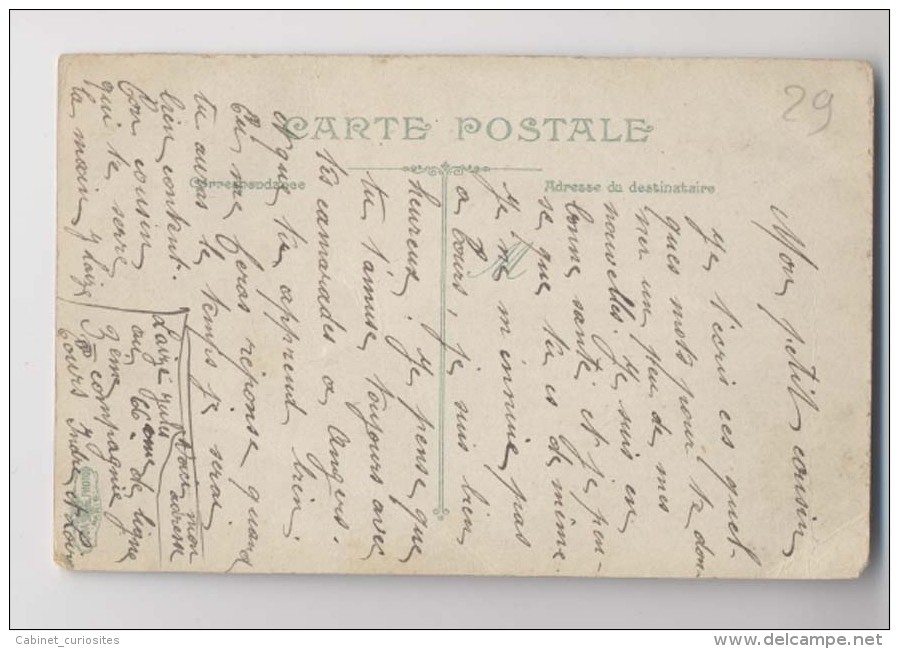 CARTE POSTALE
Correspondance
Adresse du destinataire
29
Mon petit cousin
Je t'écris ces quel-
ques mots pour te don-
ner un peu de mes
nouvelles. Je suis en
bonne santé et je pen-
se que tu es de même.
Je ne m'ennuie pas
a Tours, je suis bien
heureux. Je pense que
tu t'amuse toujours avec
tes camarades a Angers.
et que tu apprend bien.
Tu me feras réponse quand
tu auras le temps je serai
bien content.
Ton cousin
qui te serre
la main
Voici mon
adresse
au 66eme de ligne
9eme compagnie
Tours Indre et Loire
Cabinet_curiosites
www.delcampe.net